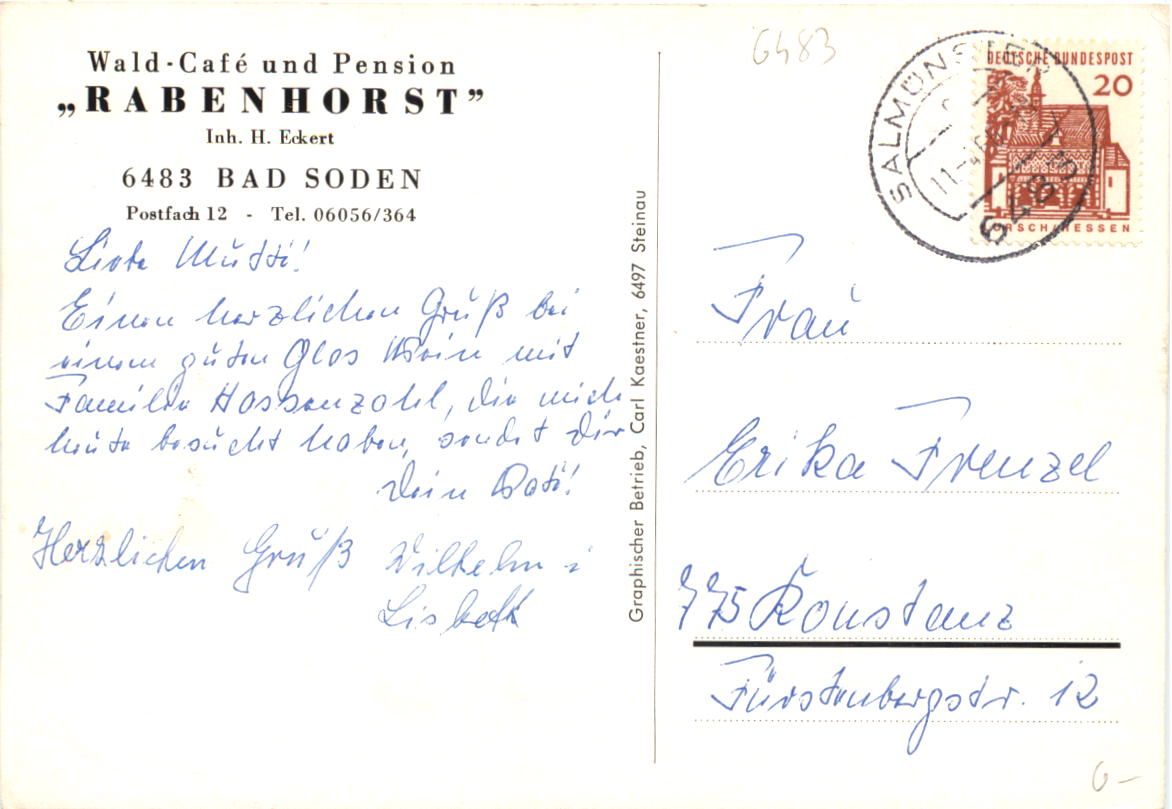 Wald-Café und Pension
„RABENHORST”
Inh. H. Eckert
6483 BAD SODEN
Postfach 12 - Tel. 06056/364
Liebe Mutti!
Einen herzlichen Gruß bei
einem guten Glas Wein mit
Familie Hassenzahl, die mich
heute besucht haben, sendet Dir
Dein Vati!
Herzlichen Gruß Wilhelm
Lisbeth
Graphischer Betrieb, Carl Kaestner, 6497 Steinau
6483
SALMÜNSTER
6483
DEUTSCHE BUNDESPOST
20
LORSCH/HESSEN
Frau
Erika Frenzel
775 Konstanz
Fürstenbergstr. 12
6-